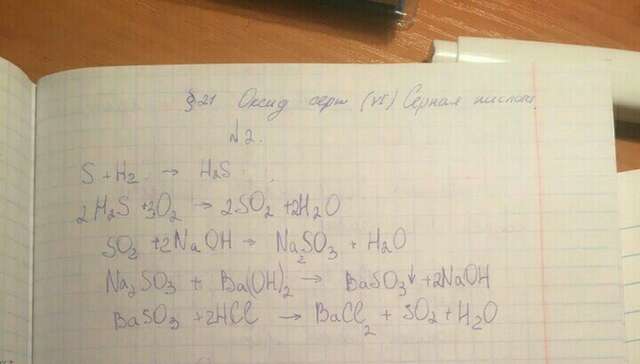 §21 Оксид серы (VI) Серная кислота
№2.
S + H2 → H2S
2H2S + 3O2 → 2SO2 + 2H2O
SO2 + 2NaOH → Na2SO3 + H2O
Na2SO3 + Ba(OH)2 → BaSO3↓ + 2NaOH
BaSO3 + 2HCl → BaCl2 + SO2 + H2O